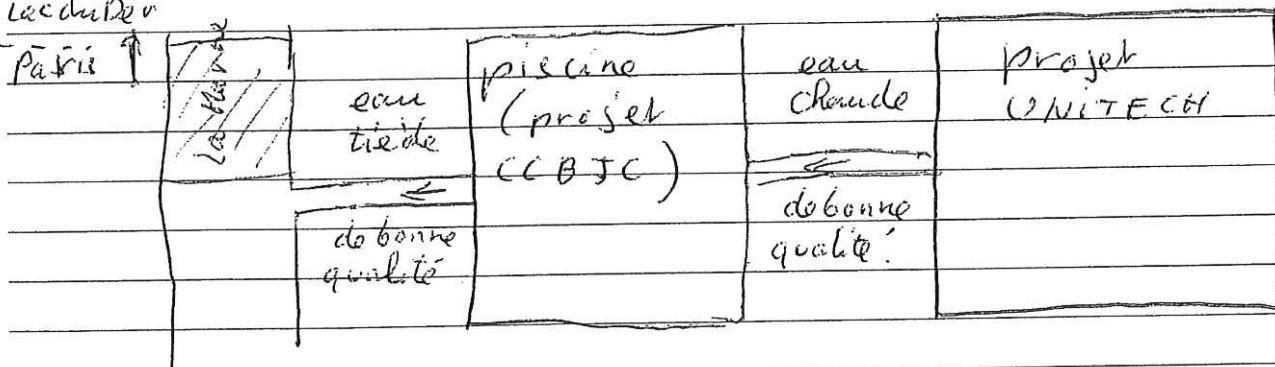 Lac du Der
Paris
La Marne
eau
tiède
de bonne
qualité
piscine
(projet
CCBJC)
eau
Chaude
de bonne
qualité.
projet
UNITECH